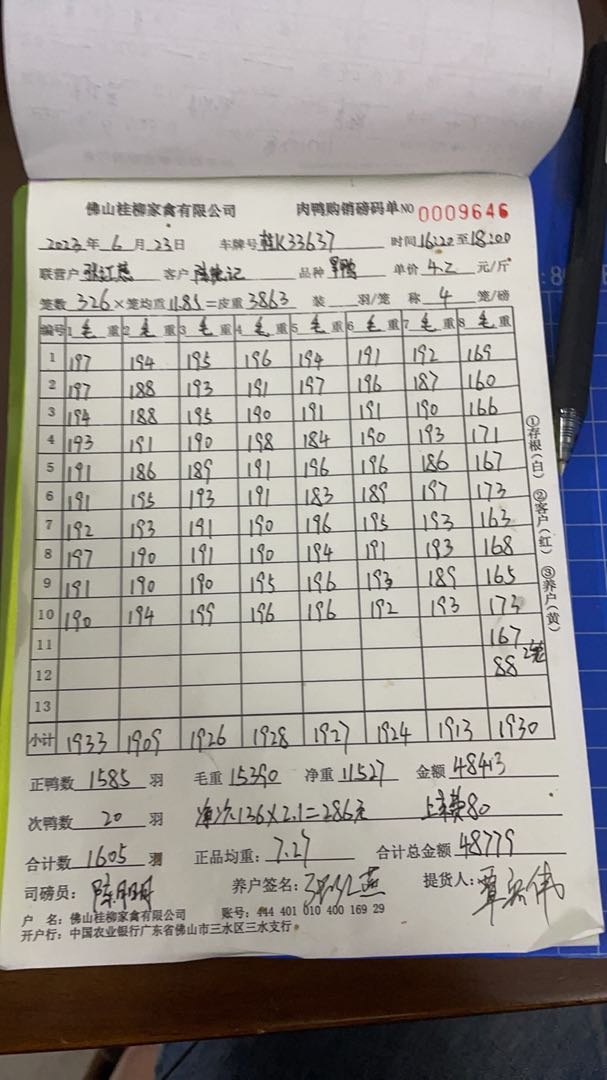 佛山桂柳家禽有限公司 肉鸭购销磅码单 NO 0009646
2023年6月23日 车牌号 桂K33637 时间16:20至18:00
联营户 客户 品种 单价 4.2 元/斤
笼数 326×笼均重11.85=皮重3863 装 羽/笼 称 4 笼/磅
编号 1毛重 2毛重 3毛重 4毛重 5毛重 6毛重 7毛重 8毛重
1 197 194 195 196 194 191 192 169
2 197 188 193 191 197 196 187 160
3 194 188 195 190 191 191 190 166
4 193 191 190 198 184 190 193 171
5 191 186 189 191 196 196 186 167
6 191 195 193 191 183 189 197 173
7 192 193 191 190 196 195 193 163
8 197 190 191 190 194 191 193 168
9 191 190 190 195 196 193 189 165
10 190 194 199 196 196 192 193 173
11 167
12 88 2笼
13
小计 1933 1909 1926 1928 1927 1924 1913 1930
①存根(白) ②客户(红) ③养户(黄)
正鸭数 1585 羽 毛重 15390 净重 11527 金额 48413
次鸭数 20 羽 净次:136×2.1=286元 80
合计数 1605 羽 正品均重: 7.27 合计总金额 48779
司磅员: 养户签名: 提货人:
户 名: 佛山桂柳家禽有限公司 账号: 444 401 010 400 169 29
开户行: 中国农业银行广东省佛山市三水区三水支行